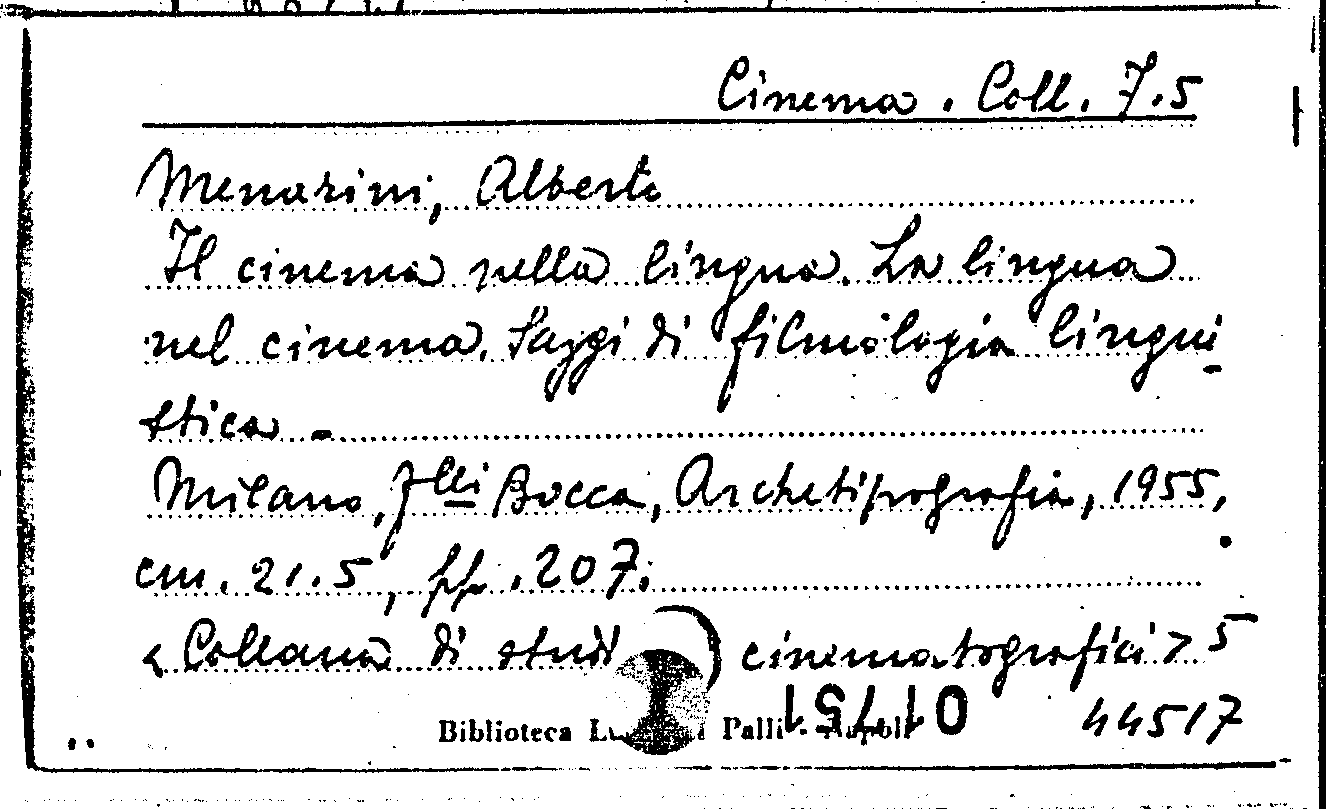 Cinema. Coll. 7.5
Menarini, Alberto
Il cinema nella lingua. La lingua
nel cinema. Saggi di filmologia lingui-
stica -
Milano, F.lli Bocca, Archetipografia, 1955,
cm. 21.5, pp. 207.
< Collana di studi cinematografici > 5
Biblioteca Palli - Napoli 44517